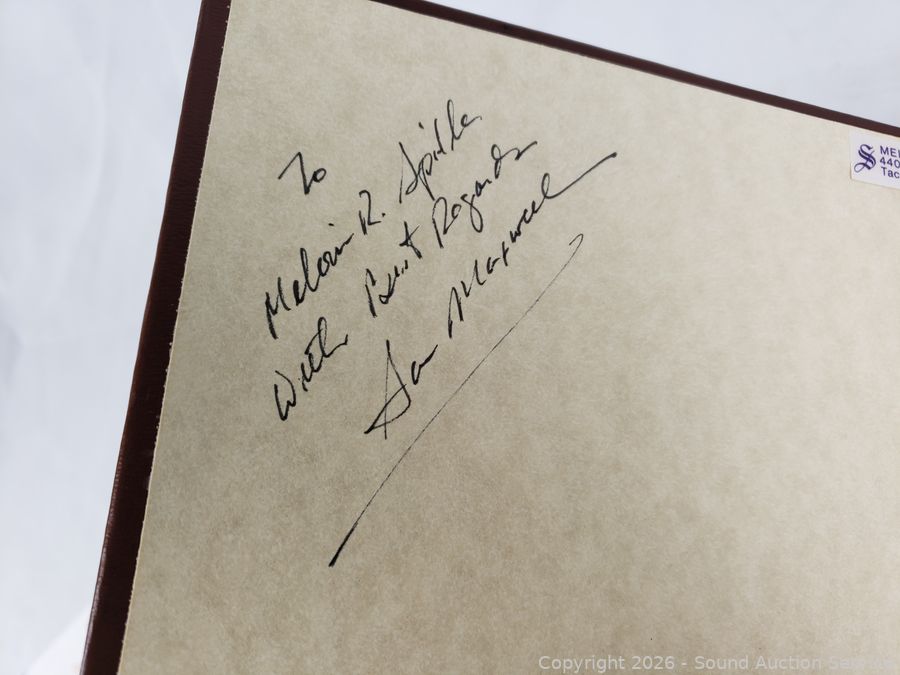 To
Melvin R.
With Best Regards
Sam Maxwell
S MEL
440
Tac
Copyright 2026 - Sound Auction Service